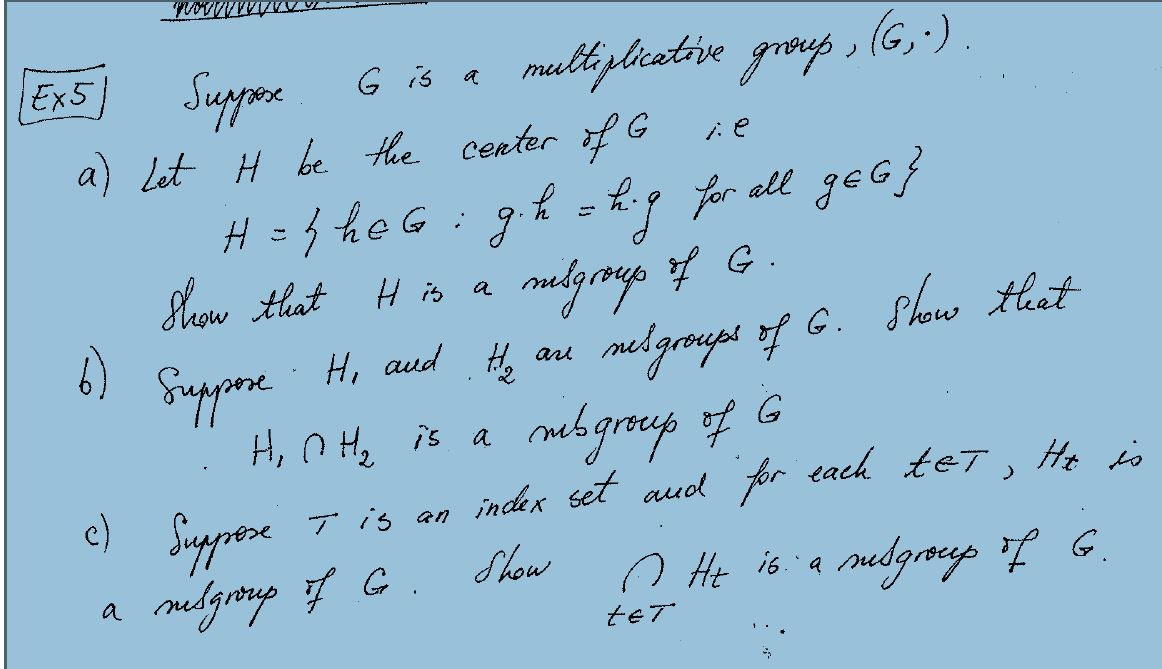 Ex5 Suppose G is a multiplicative group, (G, ·).
a) Let H be the center of G i.e
H = { h ∈ G : g·h = h·g for all g ∈ G }
Show that H is a subgroup of G.
b) Suppose H₁ and H₂ are subgroups of G. Show that
H₁ ∩ H₂ is a subgroup of G
c) Suppose T is an index set and for each t ∈ T, Ht is
a subgroup of G. Show ∩ Ht is a subgroup of G.
t ∈ T